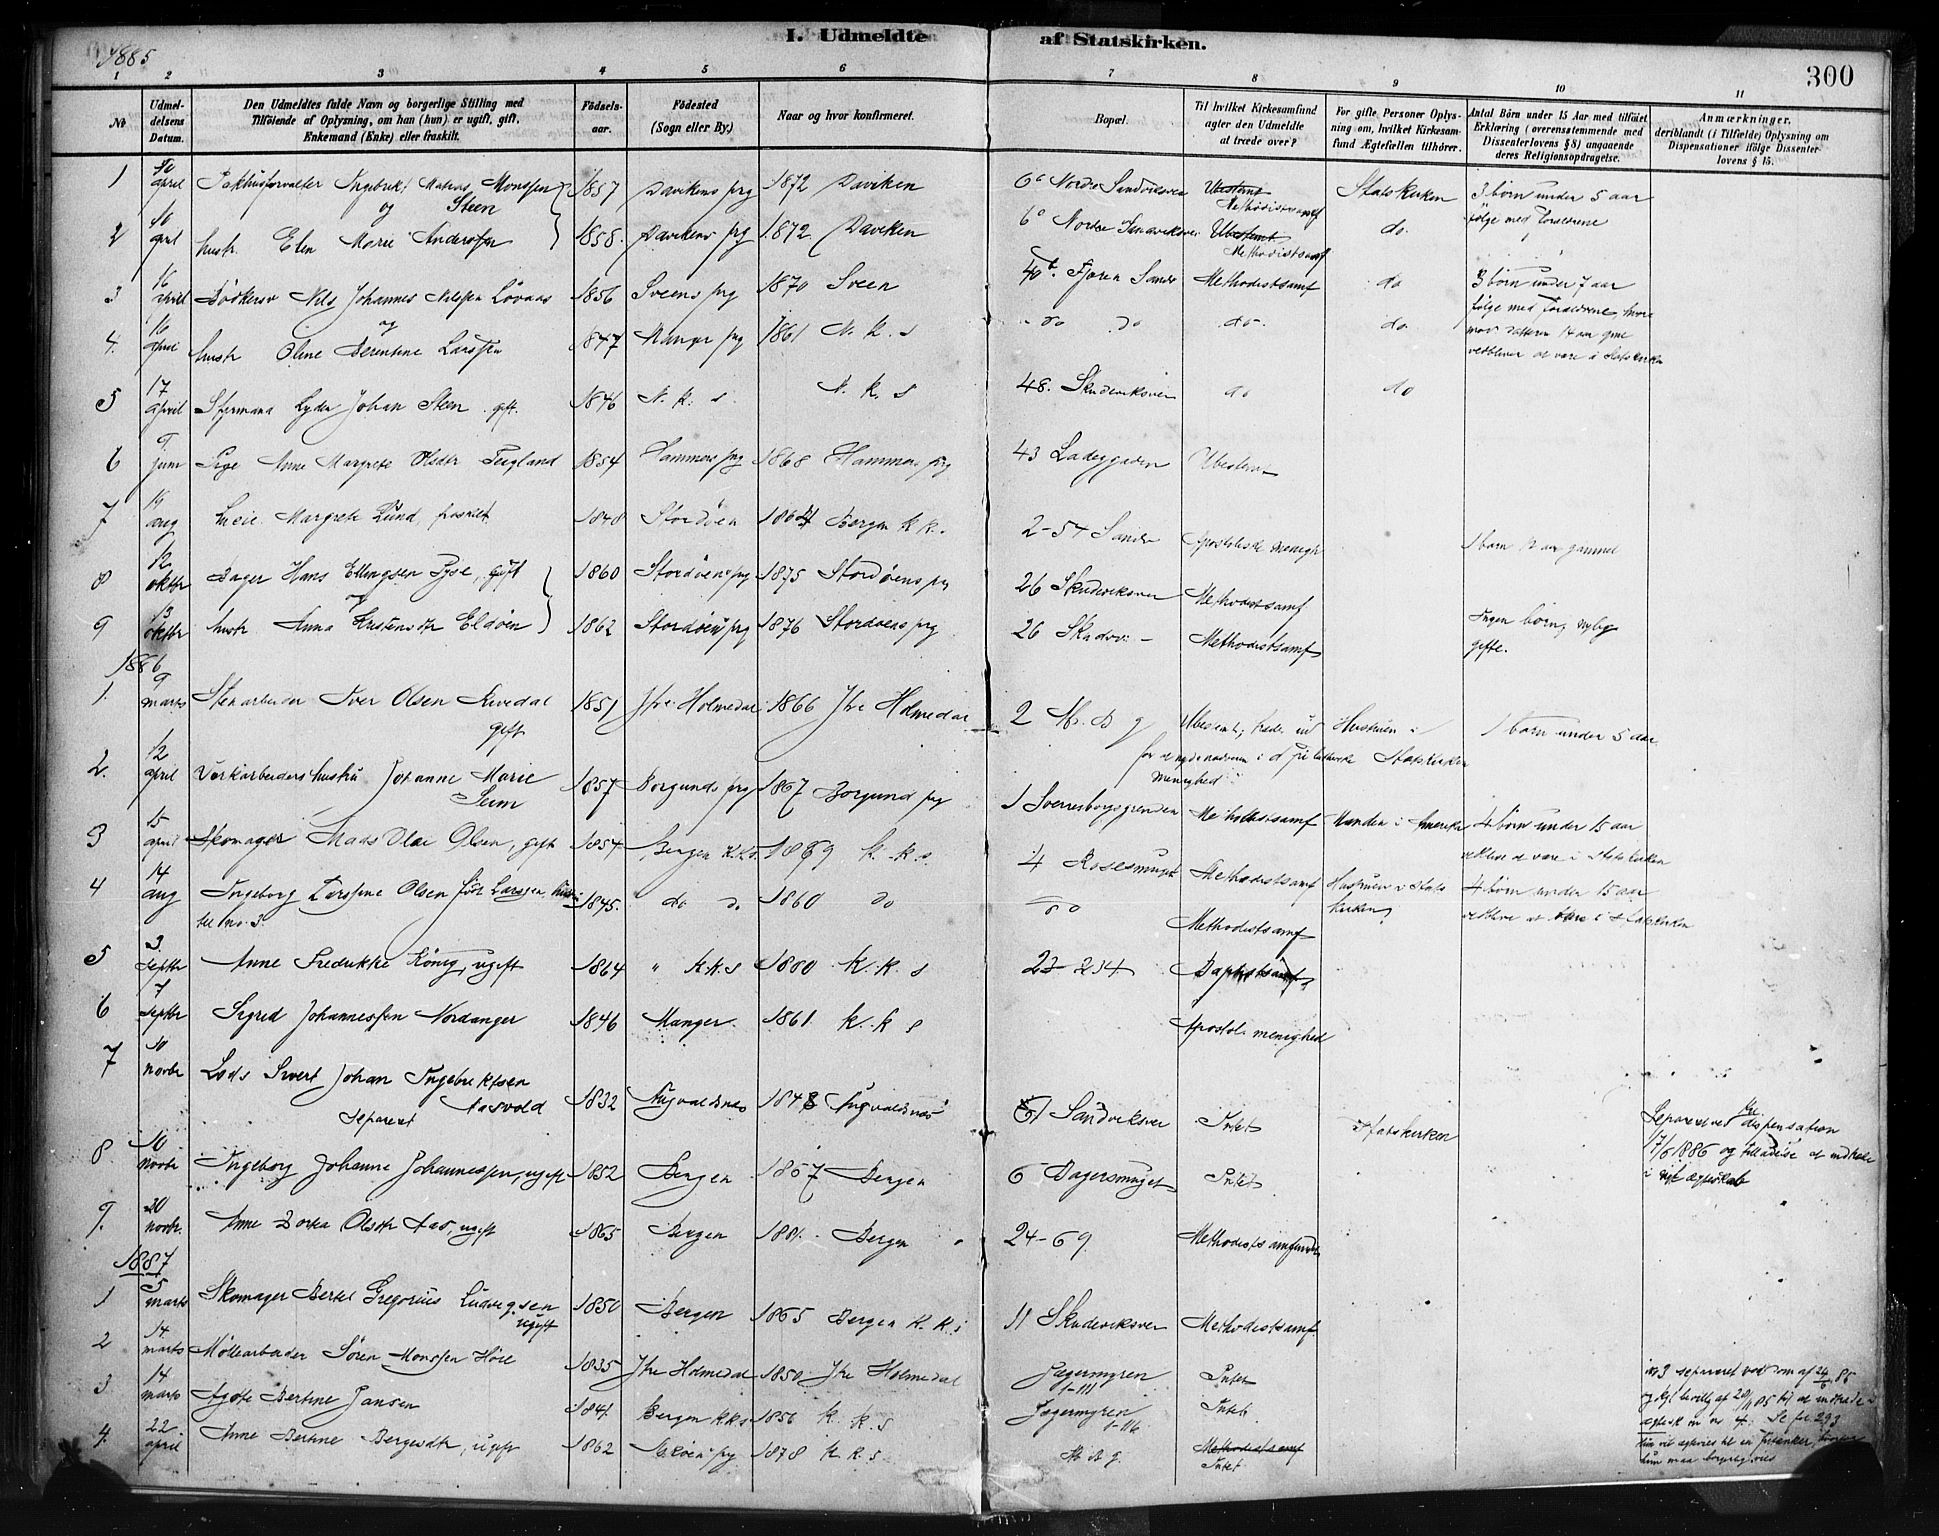 1885
I. Udmeldte af Statskirken.
300
1 2 3 4 5 6 7 8 9 10 11
No
Udmeldelsens Datum.
Den Udmeldtes fulde Navn og borgerlige Stilling med Tilføiende af Oplysning, om han (hun) er ugift, gift, Enkemand (Enke) eller fraskilt.
Fødselsaar.
Fødested (Sogn eller By.)
Naar og hvor konfirmeret.
Bopæl.
Til hvilket Kirkesamfund agter den Udmeldte at træde over?
For gifte Personer Oplysning om, hvilket Kirkesamfund Ægtefællen tilhører.
Antal Børn under 15 Aar med tilføiet Erklæring (overensstemmende med Dissenterlovens § 8) angaaende deres Religionsopdragelse.
Anmærkninger, deriblandt (i Tilfælde) Oplysning om Dispensationer ifølge Dissenterlovens § 15.
1 april Pakhusforvalter Ingebrikt Monssen Steen 1857 Davikens prg 1872 Daviken 6 Nordre Sandviksvei Methodistsamf Statskirken 3 børn under 5 aar
og følge med Forældrene
2 hustr. Elen Marie Anderssen 1858 Davikens prg 1872 Daviken 6 Nordre Sandviksvei Ubestemt Methodistsamf do.
3 16 april Bødkersv Nils Johannes Nilssen Løvaas 1856 Sveens prg 1870 Sveen Fjæren Sandv Methodistsamf do 3 børn under 7 aar
og følge med Forældrene
4. 16 april hustr Oline Berentine Larssen 1847 Manger prg 1861 N. k. s do do do. do.
vedbliver at være i Statskirken
5 17 april Styrmand Lyder Johan Steen gift. 1846 N. k. s. N. k. s 48. Skudeviksvei do do
6 9 juni Pige Anne Margrete Olsdtr Teigland 1854 Hammers prg 1868 Hammers prg 43 Ladegaden Ubestemt
7 19 aug Lucie Margrete Lund fraskilt 1848 Stordøen 1864 Bergen k k. 2-54 Sandv Apostolisk menigh 1 barn 12 aar gammel
8 12 oktbr Bager Hans Ellingsen Tyse, gift 1860 Stordøens prg 1875 Stordøens prg 26 Skudeviksvei Methodistsamf
9 13 oktbr hustr Anna Kristensdtr Eldøen 1862 Stordøens prg 1876 Stordøens prg 26 Skudevi - Methodistsamf Ingen børn, nylig gifte.
1886
1. 9 marts Stenarbeider Iver Olsen gift 1851 Ytre Holmedal 1866 Ytre Holmedal 2 Hustruen i Statskirken 1 barn under 5 aar
menighed
2. 12 april Verkarbeiders hustru Johanne Marie Seim 1857 Borgunds prg 1867 Borgund prg 1 Sverresborgsgrenden Methodistsamf Manden i Amerika 4 børn under 15 aar
vedblive at være i Statskirken
3 15 april Skomager Mads Olai Olsen, gift 1854 Bergen K.K.s. 1869 k. k s. 4 Rosesmuget Methodistsamf Hustruen i Statskirken 4 børn under 15 aar
vedblive at være i Statskirken
4 14 aug Ingeborg Larssine Olsen født Larssen, hustru til no. 3. 1845. do do 1860 do do Methodistsamf
5 3. Septbr Anne Fredrikke König, ugift 1864 " K.K.s 1880 K. K. s 23-234 Baptistsamf
6 7 Septbr Sigrid Johannessen Nordanger 1846 Manger. 1861. K. k s Apostol. menighed
7 10 novbr Lods Sivert Johan Ingebriktsen Aasvold separeret 1832 Augvaldsnes 1848 Augvaldsnes 61 Sandviksvei Intet Statskirken Separeret ved dispensation
17/6 1886 og tilladelse at indtræde i nyt ægteskab
8 10 novbr Ingeborg Johanne Johannessen, ugift 1852 Bergen 1867 Bergen 6 Bagersmuget Intet
9. 20 novbr. Anne Dortea Olsdtr Aas, ugift 1865 Bergen 1881. Bergen 24-69. Methodistsamfundet
1887
1 5 marts Skomager Bertel Gregorius Ludvigsen ugift 1850 Bergen 1865 Bergen K. K. s 11 Skudeviksvei Methodistsamf
2 14 marts Møllearbeider Søren Monssen 1835 Ytre Holmedal 1850 Ytre Holmedal Jægermyren 1-111 Intet
3 14 marts Agate Bertine Jansen 1841. Bergen k.k.s 1856 K. K. s Jægermyren 1-116 Intet.
4. 22 april Anne Bertine Bergesdtr, ugift 1862 1878 K. K. s Methodistsamf Intet
no 3 separeret ved dom af 24/6 85